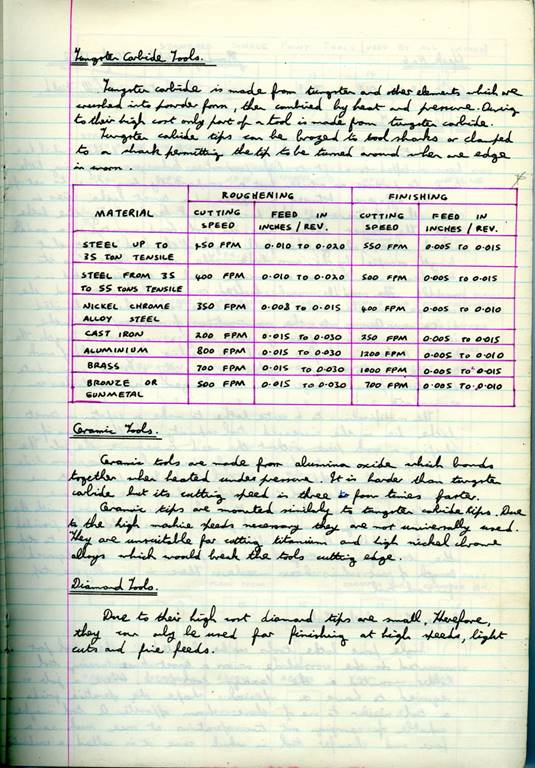 Tungsten Carbide Tools.
Tungsten carbide is made from tungsten and other elements which are
crushed into powder form, then combined by heat and pressure. Owing
to their high cost only part of a tool is made from tungsten carbide.
Tungsten cabide tips can be brazed to tool shanks or clamped
to a shank permitting the tip to be turned around when one edge
is worn.
ROUGHENING FINISHING
MATERIAL CUTTING SPEED FEED IN INCHES / REV. CUTTING SPEED FEED IN INCHES / REV.
STEEL UP TO 35 TON TENSILE 450 FPM 0.010 TO 0.020 550 FPM 0.005 TO 0.015
STEEL FROM 35 TO 55 TONS TENSILE 400 FPM 0.010 TO 0.020 500 FPM 0.005 TO 0.015
NICKEL CHROME ALLOY STEEL 350 FPM 0.008 TO 0.015 400 FPM 0.005 TO 0.010
CAST IRON 200 FPM 0.015 TO 0.030 250 FPM 0.005 TO 0.015
ALUMINIUM 800 FPM 0.015 TO 0.030 1200 FPM 0.005 TO 0.010
BRASS 700 FPM 0.015 TO 0.030 1000 FPM 0.005 TO 0.015
BRONZE OR GUNMETAL 500 FPM 0.015 TO 0.030 700 FPM 0.005 TO 0.010
Ceramic Tools.
Ceramic tools are made from alumina oxide which bonds
together when heated under pressure. It is harder than tungsten
carbide but its cutting speed is three to four times faster.
Ceramic tips are mounted similarly to tungsten carbide tips. Due
to the high machine speeds necessary they are not universally used.
They are unsuitable for cutting titanium and high nickel chrome
alloys which would break the tools cutting edge.
Diamond Tools.
Due to their high cost diamond tips are small, therefore,
they can only be used for finishing at high speeds, light
cuts and fine feeds.